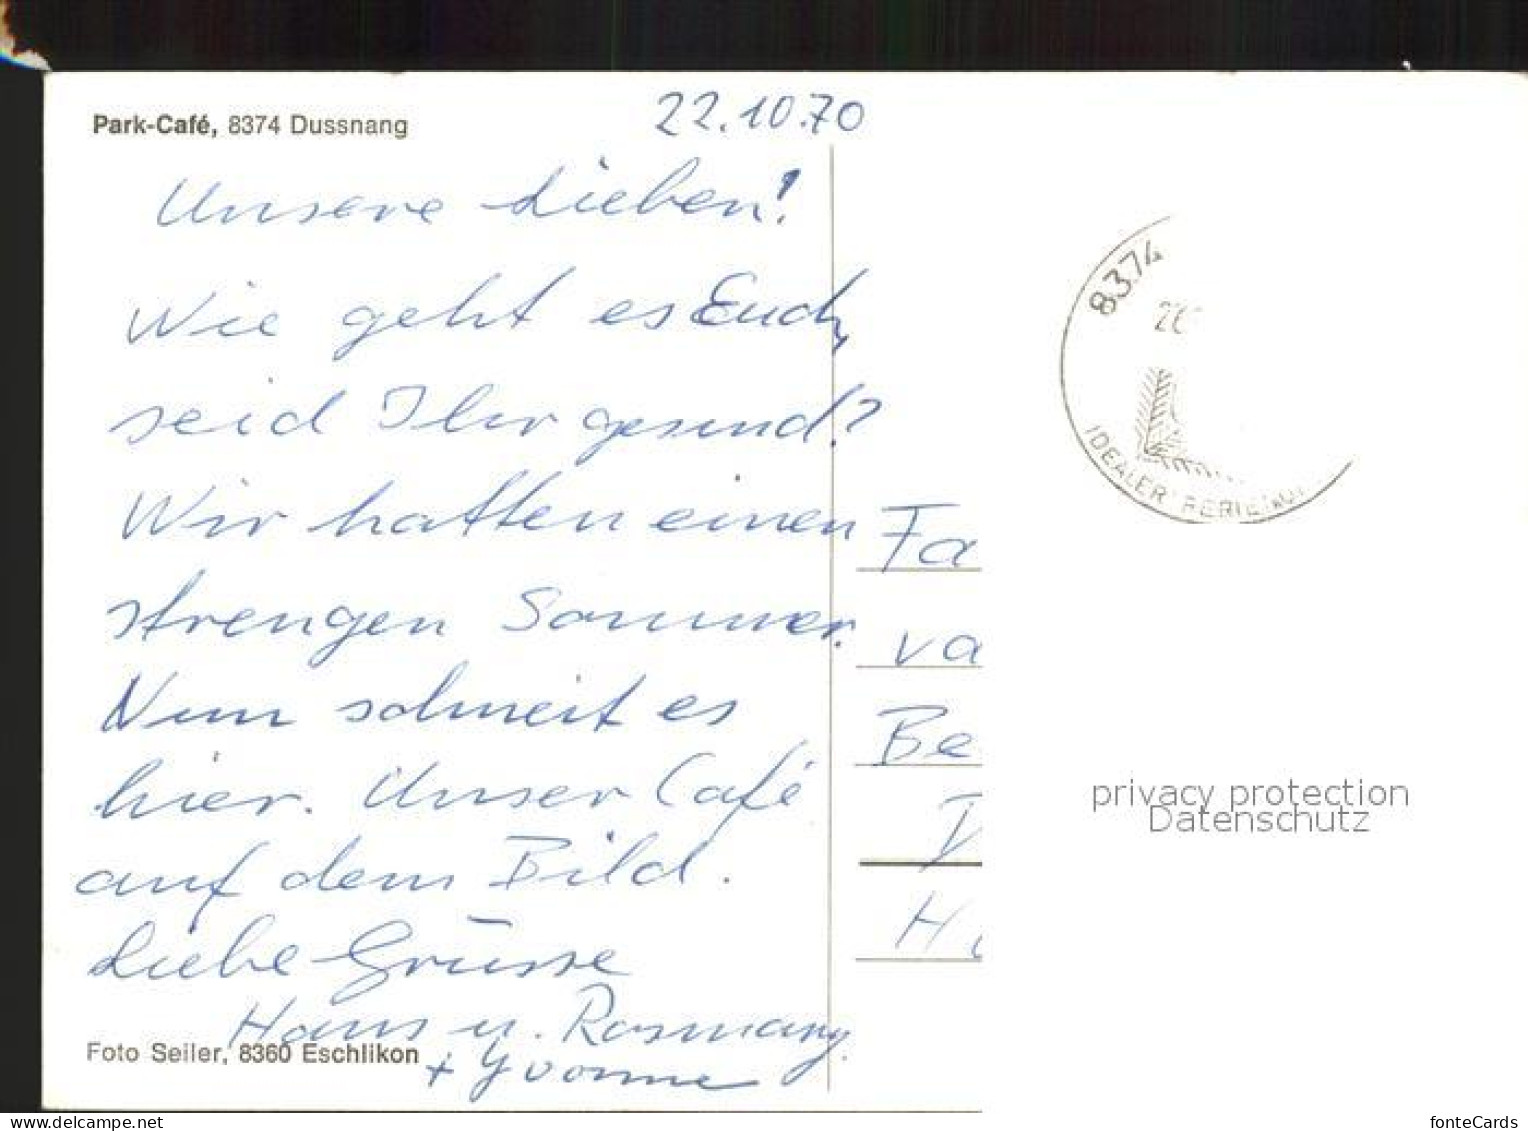 Park-Café, 8374 Dussnang
22.10.70
Unsere Lieben!
Wie geht es Euch,
seid Ihr gesund?
Wir hatten einen
strengen Sommer.
Nun schneit es
hier. Unser Café
auf dem Bild.
Liebe Grüsse
Hans u. Rosmary
+ Yvonne
Foto Seiler, 8360 Eschlikon
8374
IDEALER FERIENO
Fa
va
Be
D
H
privacy protection
Datenschutz
fonteCards